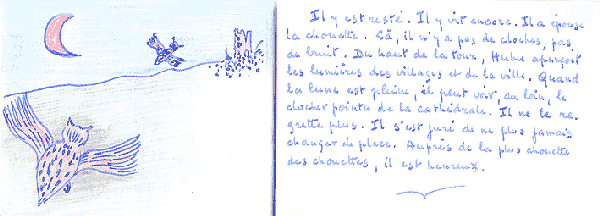 Il y est resté. Il y vit encore. Il a épousé
la chouette. Là, il n'y a pas de cloches, pas
de bruit. Du haut de la tour, Huhu aperçoit
les lumières des villages et de la ville. Quand
la lune est pleine, il peut voir, au loin, le
clocher pointu de la cathédrale. Il ne le re-
grette plus. Il s'est juré de ne plus jamais
changer de place. Auprès de la plus chouette
des chouettes, il est heureux.